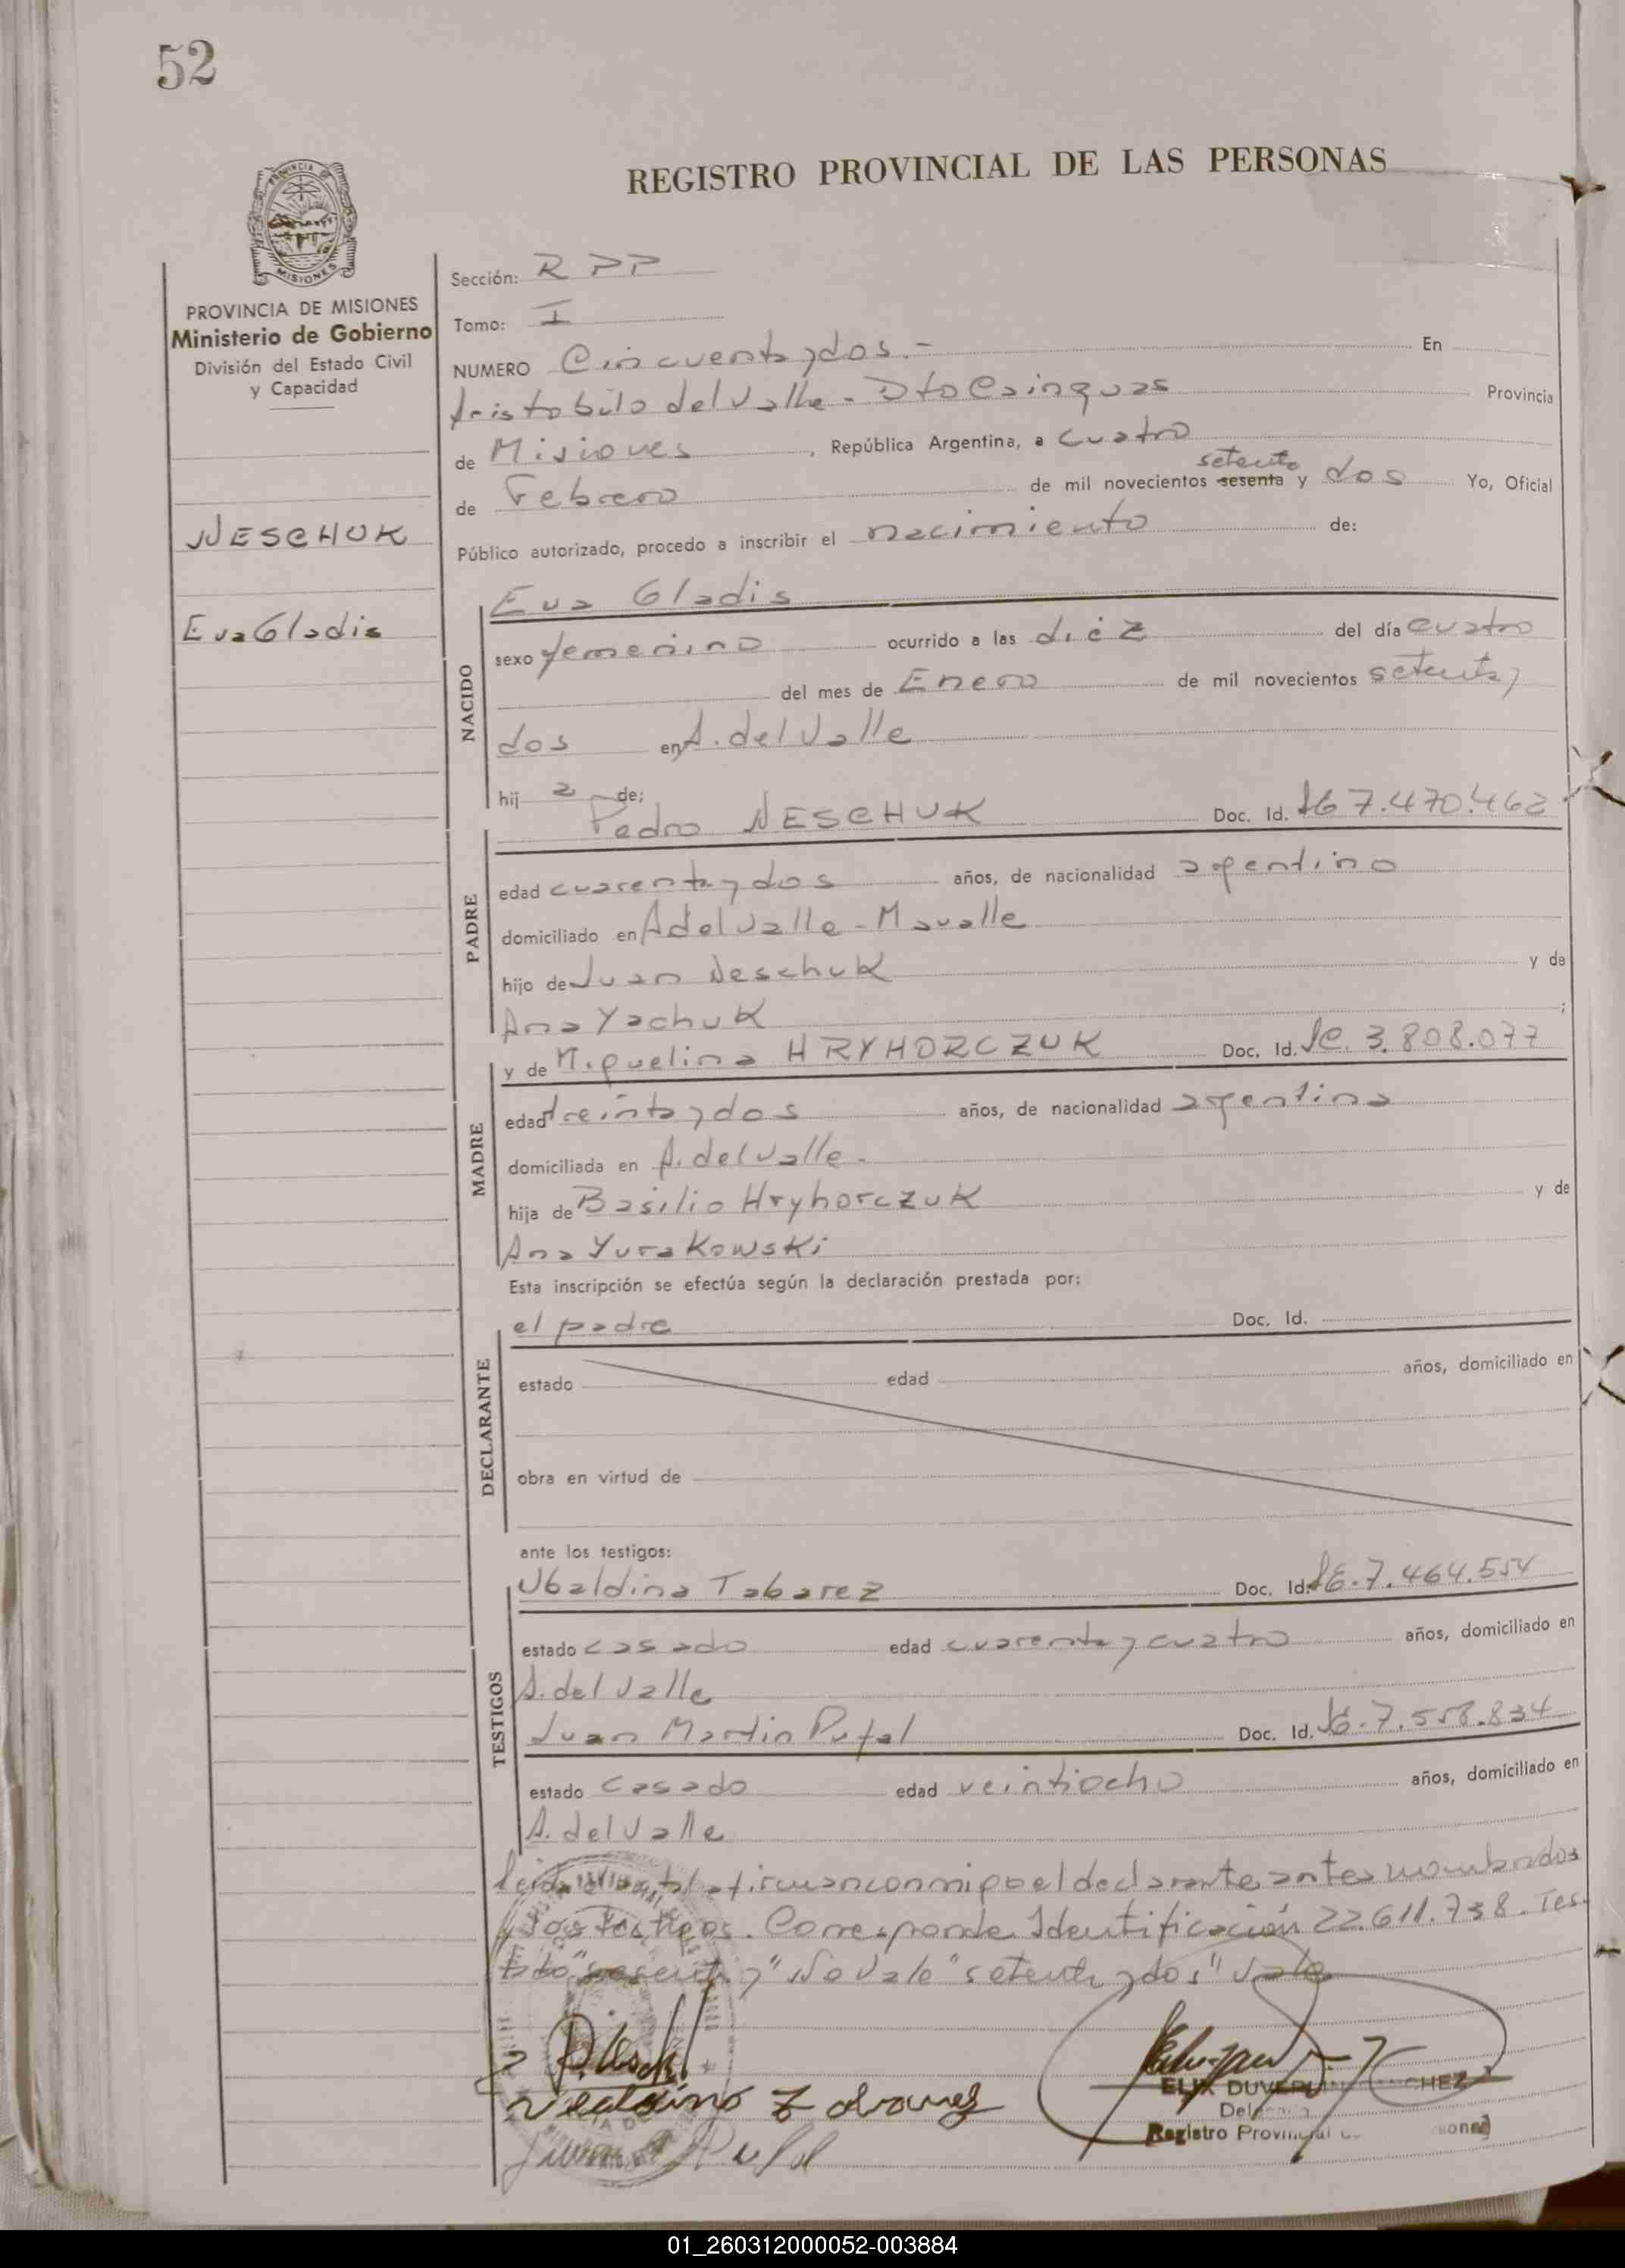 52
REGISTRO PROVINCIAL DE LAS PERSONAS
PROVINCIA DE MISIONES
Ministerio de Gobierno
División del Estado Civil
y Capacidad
NESCHUK
Eva Gladis
Sección: R P P
Tomo: I
NUMERO Cincuenta y dos.- En
Aristobulo del Valle - Dto Cainguas Provincia
de Misiones, República Argentina, a cuatro
setenta
de Febrero de mil novecientos sesenta y dos Yo, Oficial
Público autorizado, procedo a inscribir el nacimiento de:
NACIDO
Eva Gladis
sexo femenino ocurrido a las diéz del día cuatro
del mes de Enero de mil novecientos setenta y
dos en A. del Valle
hij a de;
PADRE
Pedro NESCHUK Doc. Id. 7.470.462
edad cuarenta y dos años, de nacionalidad argentino
domiciliado en A del Valle -
hijo de Juan Neschuk y de
Ana Yachuk ;
MADRE
y de Miguelina HRYHORCZUK Doc. Id. 3.808.077
edad treinta y dos años, de nacionalidad argentina
domiciliada en A. del Valle -
hija de Basilio Hryhorczuk y de
Ana Yurakowski
Esta inscripción se efectúa según la declaración prestada por:
DECLARANTE
el padre Doc. Id.
estado edad años, domiciliado en
obra en virtud de
ante los testigos:
TESTIGOS
Ubaldino Tabarez Doc. Id. 7.464.554
estado casado edad cuarenta y cuatro años, domiciliado en
A. del Valle
Juan Martin Pufal Doc. Id. 7.558.834
estado casado edad veintiocho años, domiciliado en
A. del Valle
Leida el acta la firman conmigo el declarante antes nombrados
y los testigos. Corresponde Identificación 22.611.738. Tes-
tado "sesenta y" No Vale "setenta y dos" Vale
ELIX DUVER
Registro Provincial
01_260312000052-003884